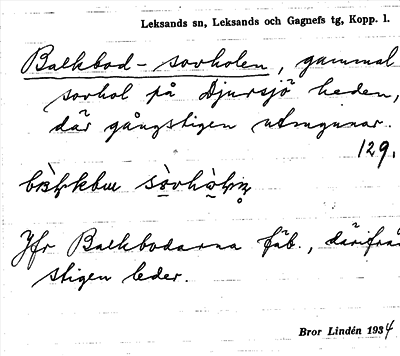 Leksands sn, Leksands och Gagnefs tg, Kopp. l.
Balkbod-sovholen, gammal
sovhol på Djursjö heden,
där gångstigen utmynnar.
129.
Jfr Balkbodarna fäb., därifrån
stigen leder.
Bror Lindén 1934